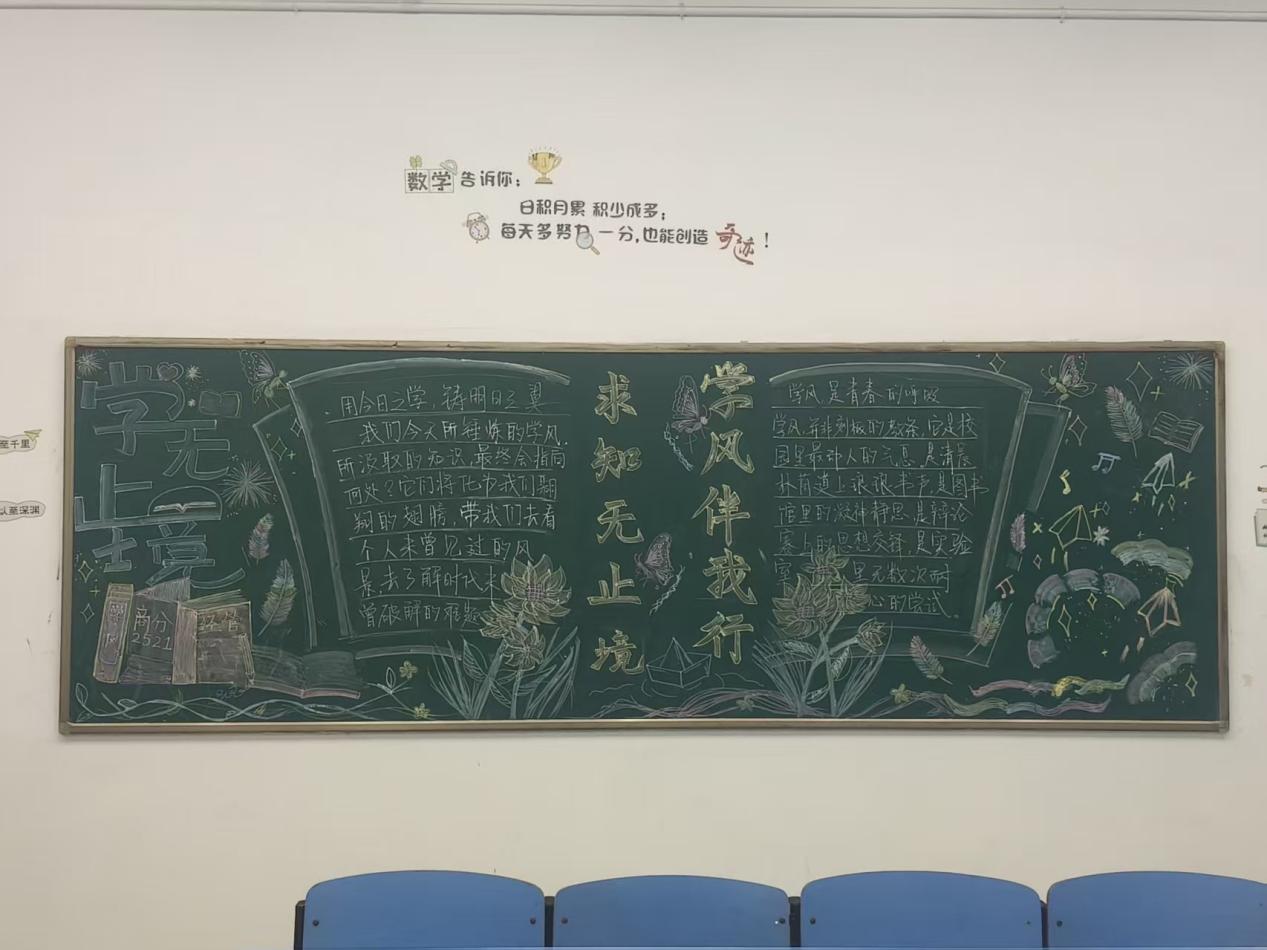 数学告诉你：
日积月累 积少成多；
每天多努力一分，也能创造奇迹！
至千里
以至深渊
学无
止境
商分
2521
经管
用今日之学，铸明日之翼
我们今天所锤炼的学风，
所汲取的知识，最终会指向
何处？它们将化带我们翱
翔的翅膀，带我们去看
个人未曾见过的风
景，去了解时代未
曾破解的难题
求知无止境
学风伴我行
学风是青春的呼吸
学风，并非刻板的教条，它是校
园里最动人的气息，是清晨
林荫道上琅琅书声，是图书
馆里的凝神静思，是辩论
赛上的思想交锋，是实验
室 里无数次耐
心的尝试.